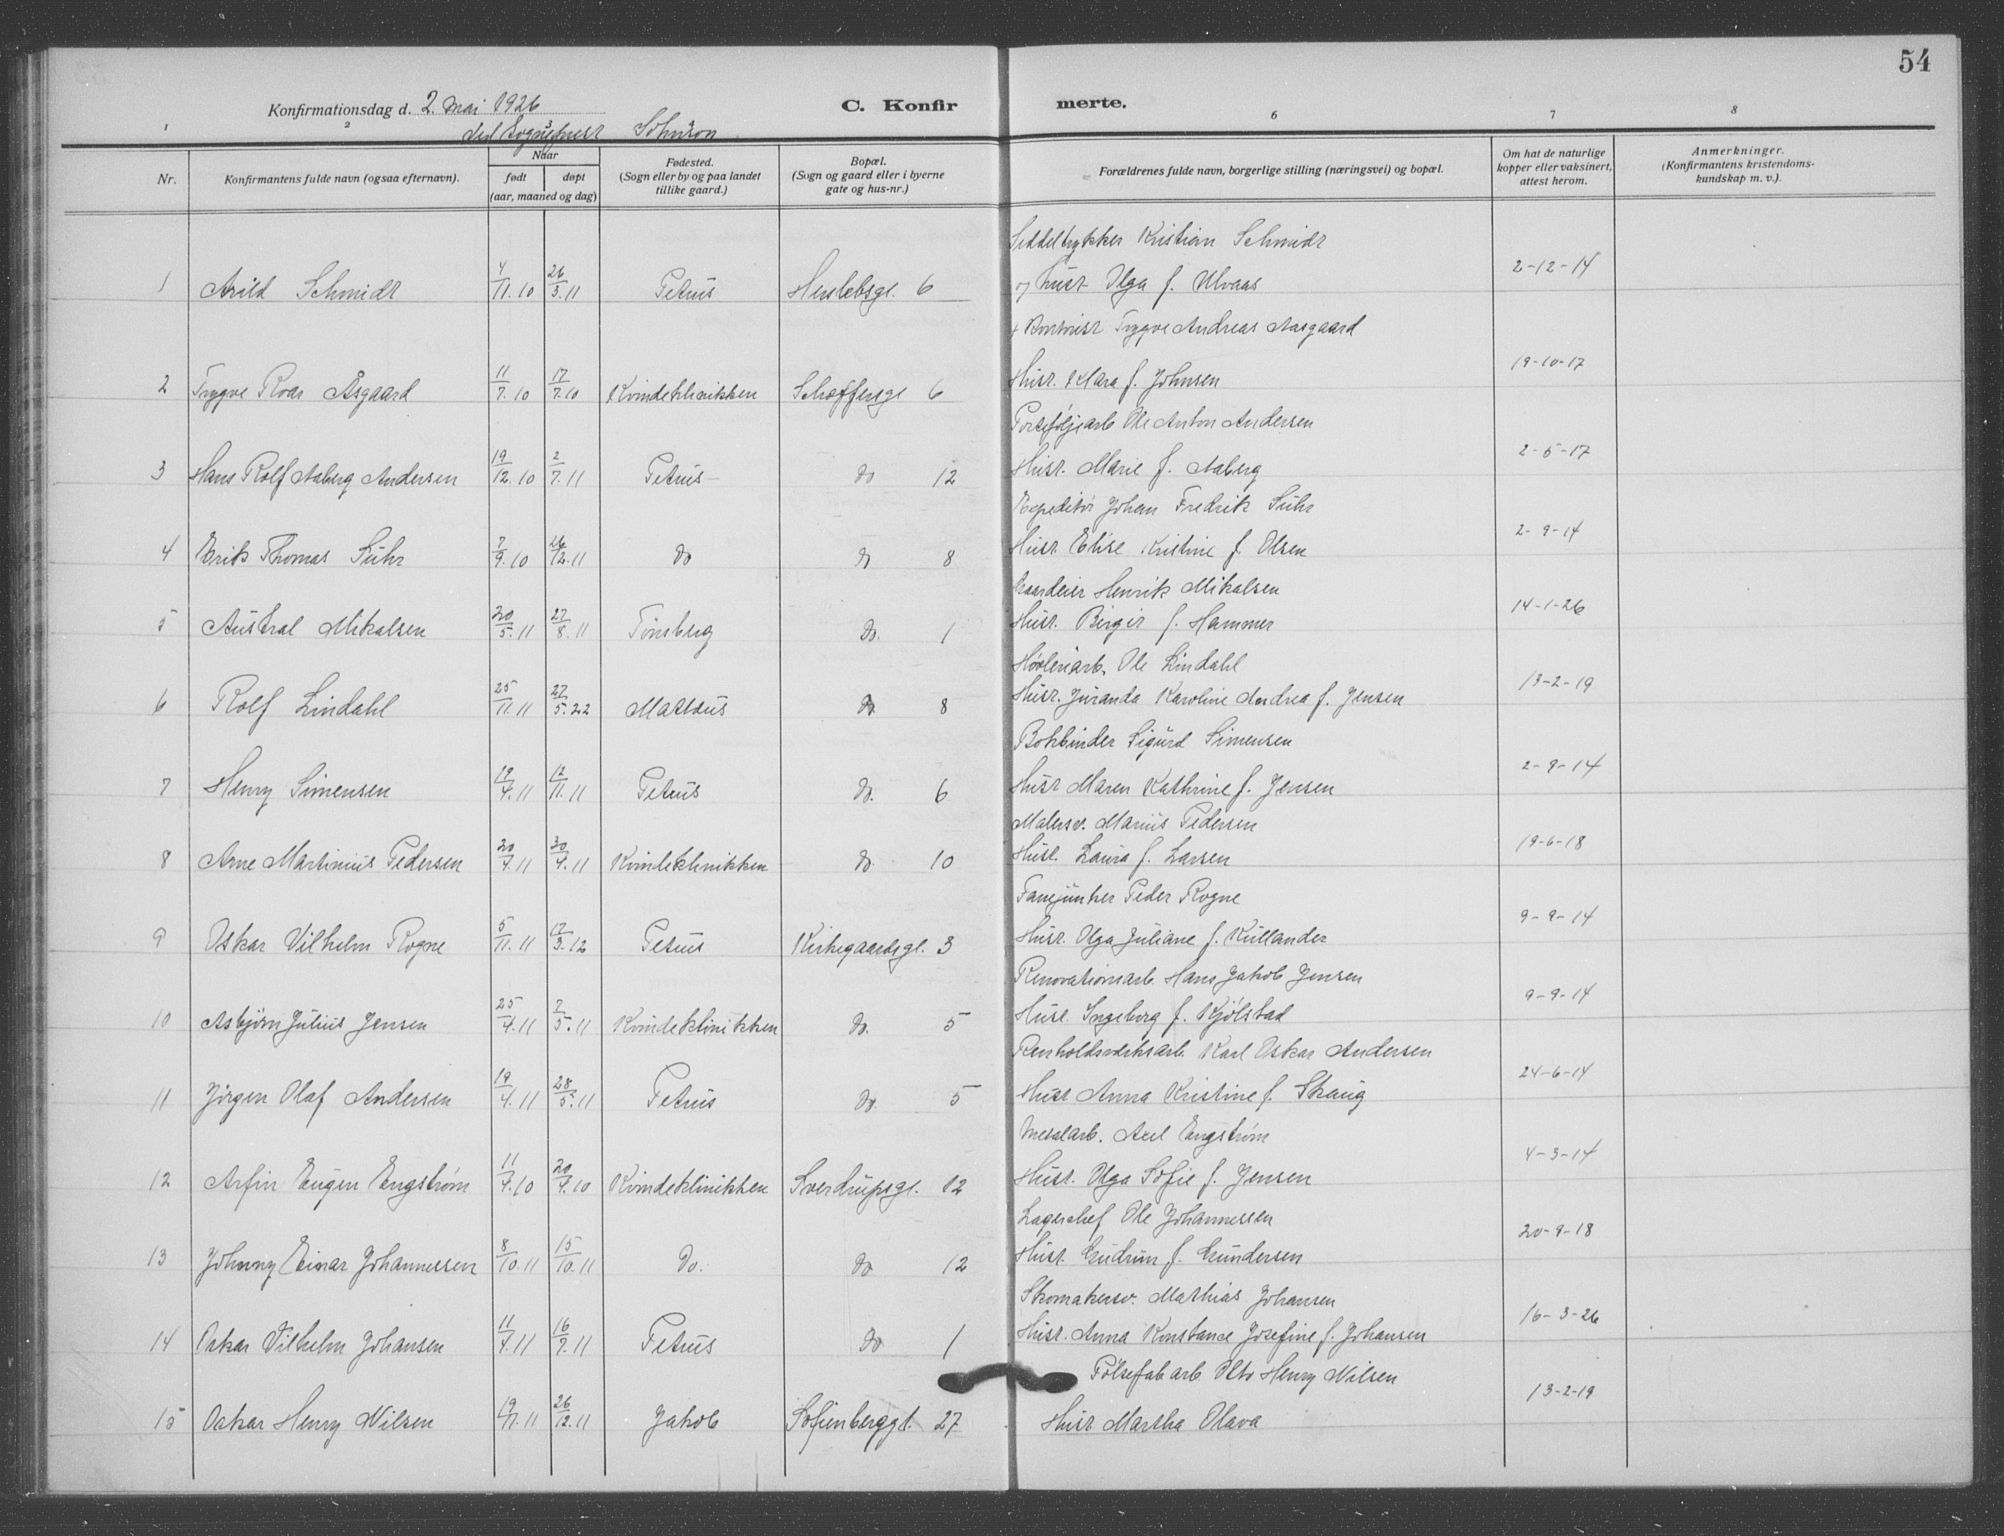 54
Konfirmationsdag d. 2. Mai 1926 C. Konfirmerte.
ved Sogneprest
1 2 3 6 7 8
Nr. Konfirmantens fulde navn (ogsaa efternavn). Naar født døpt (aar, maaned og dag) Fødested. (Sogn eller by og paa landet tillike gaard.) Bopæl. (Sogn og gaard eller i byerne gate og hus-nr.) Forældrenes fulde navn, borgerlige stilling (næringsvei) og bopæl. Om hat de naturlige kopper eller vaksinert, attest herom. Anmerkninger. (Konfirmantens kristendomskundskap m. v.).
Kristian Schmidt
1 Arild Schmidt 4/11.10 26/3.11 Petrus Herslebsgt. 6 og Hust Olga f. Ulvaas 2-12-14
Trygve Andreas Aasgaard
2 Trygve Roar Åsgaard 11/7.10 17/7.10 Kvindeklinikken Schæffersgt 6 Hust. Klara f. Johnsen 19-10-17
Porteføljearb Ole Anton Andersen
3 Hans Rolf Aaberg Andersen 19/12.10 2/7.11 Petrus do 12 Hust. Marie f. Aaberg 2-5-17
Expeditør Johan Fredrik Suhr
4 Erik Thomas Suhr 7/9.10 26/12.11 do do 8 Hust Elise Kristine f. Olsen 2-9-14
Gaardeier Henrik Mikalsen
5 Austral Mikalsen 20/5.11 27/8.11 Tønsberg do. 1 Hust. Birgit f. Hammer 14-1-26
Høvleriarb. Ole Lindahl
6 Rolf Lindahl 25/11.11 27/5.22 Matteus do 8 Hust. Juranda Karoline Andrea f. Jensen 13-2-19
Bokbinder Sigurd Simensen
7 Henry Simensen 19/4.11 12/11.11 Petrus do. 6 Hust Maren Kathrine f. Jensen 2-9-14
Malersv. Marius Pedersen
8 Arne Martinius Pedersen 20/4.11 30/4.11 Kvindeklinikken do. 10 Hust. Laura f. Larsen 19-6-18
Fanejunker Peder Rogne
9 Oskar Vilhelm Rogne 5/11.11 17/3.12 Petrus Kirkegaardsgt. 3 Hust. Olga Juliane f. Kullander 9-9-14
Renovationsarb. Hans Jakob Jensen
10 Asbjørn Julius Jensen 25/4.11 7/5.11 Kvindeklinikken do. 5 Hust. Ingeborg f. Kjølstad 9-9-14
Renholdsverksarb. Karl Oskar Andersen
11 Jørgen Olaf Andersen 19/4.11 28/5.11 Petrus do. 5 Hust Anna Kristine f. Skaug 24-6-14
Metalarb. Axel Engstrøm
12 Arfin Eugen Engstrøm 11/4.10 20/4.10 Kvindeklinikken Sverdrupsgt. 12 Hust. Olga Sofie f. Jensen 4-3-14
Lagerchef Ole Johannessen
13 Johnny Einar Johannessen 8/10.11 15/10.11 do. do 12 Hust. Gudrun f. Gundersen 20-9-18
Skomakersv. Mathias Johansen
14 Oskar Vilhelm Johansen 11/4.11 16/7.11 Petrus do 1 Hust. Anna Konstance Josefine f. Johansen 16-3-26
Pølsefab arb Otto Henry Nilsen
15 Oskar Henry Nilsen 19/11.11 26/12.11 Jakob Sofienberggt. 27 Hust Martha Olava 13-2-19